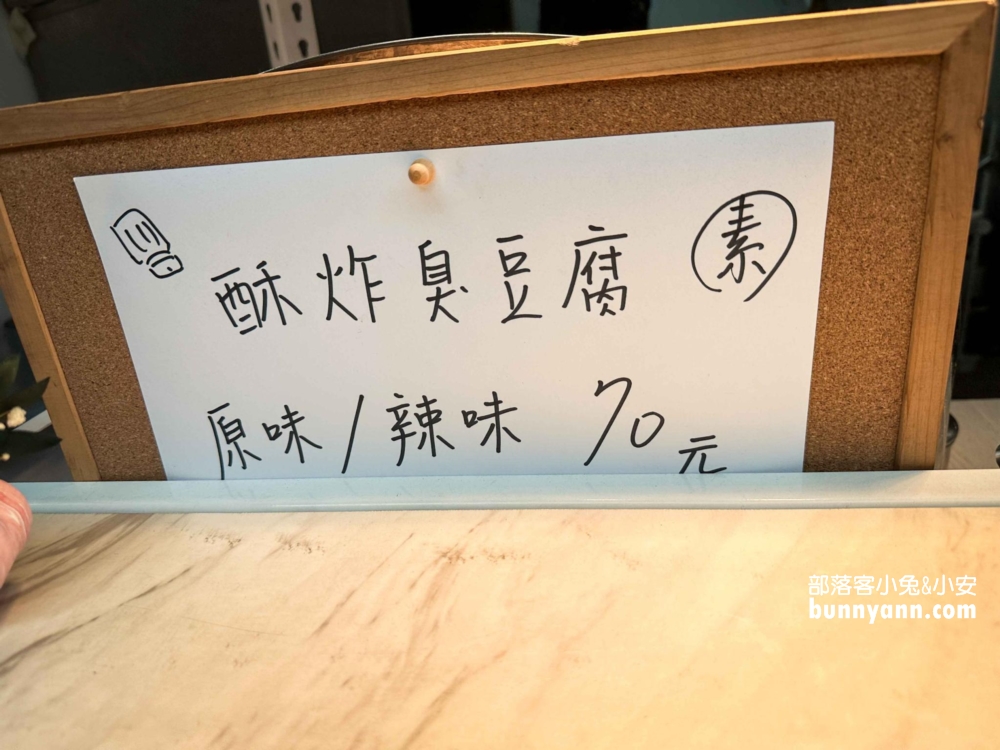 酥炸臭豆腐 素
原味/辣味 70元
部落客小兔&小安
bunnyann.com